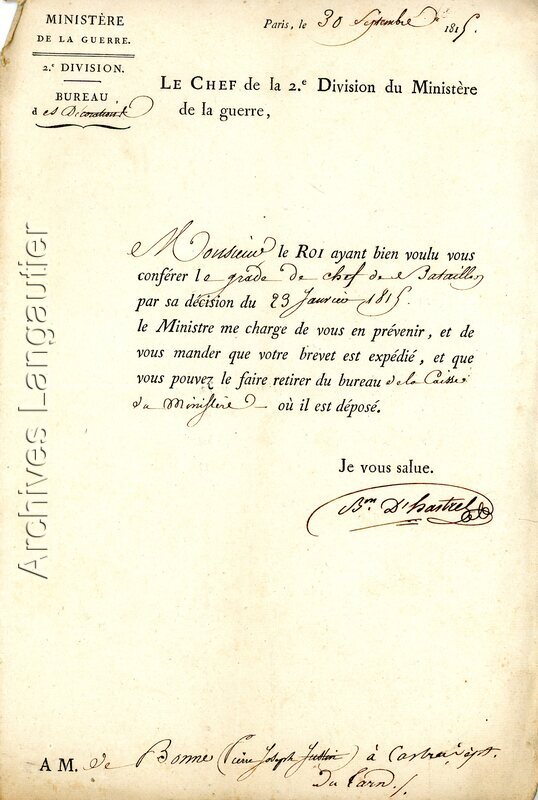 MINISTÈRE
DE LA GUERRE.
2.e DIVISION.
BUREAU
des Décorations
Paris, le 30 Septembre 1815.
LE CHEF de la 2.e Division du Ministère
de la guerre,
Monsieur le ROI ayant bien voulu vous
conférer le grade de chef de Bataillon
par sa décision du 23 Janvier 1815.
le Ministre me charge de vous en prévenir, et de
vous mander que votre brevet est expédié, et que
vous pouvez le faire retirer du bureau de la Caisse
du Ministère où il est déposé.
Je vous salue.
Bon. D'hastrel
A M. de Bonne (Pierre Joseph Justin) à Castres dépt.
Du Tarn.
Archives Langautier